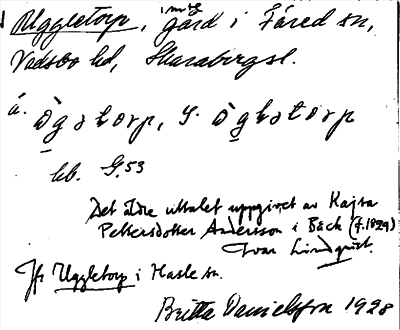 i mindre
Uggletorp, gård i Fåred sn,
Vadsbo hd, Skarabergsl.
ä. ògətorp, y. ògləstorp
hb. G, 53
Det äldre uttalet uppgivet av Kajsa
Pettersdotter Andersson i Bäck (f. 1829)
Ivar Lindquist.
Jfr Uggletorp i Hasle sn.
Britta Danielsson 1928